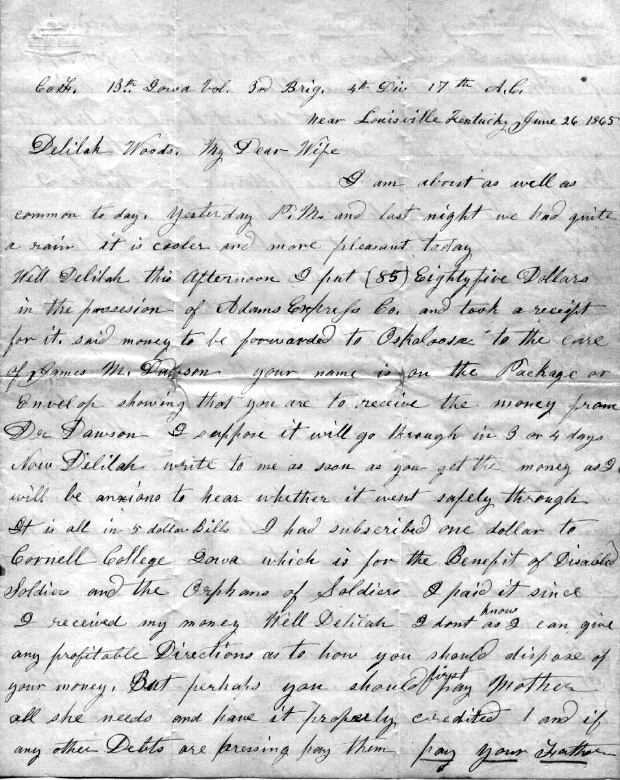 CoH. 13th. Iowa Vol. 3rd Brig. 4th Div 17th A.C.
near Louisville Kentucky, June 26 1865
Delilah Woods. My Dear Wife
I am about as well as
common to day. Yesterday P.M. and last night we had quite
a rain it is cooler and more pleasant today
Well Delilah this Afternoon I put (85) Eightyfive Dollars
in the possesion of Adams Express Co. and took a receipt
for it. said money to be forwarded to Oskaloosa to the care
of James M. Dawson your name is on the Package or
Envelop showing that you are to receive the money from
Dr Dawson I suppose it will go through in 3 or 4 days
Now Delilah write to me as soon as you get the money as I
will be anxious to hear whether it went safely through
It is all in 5 dollar Bills I had subscribed one dollar to
Cornell College Iowa which is for the Benefit of Disabled
Soldiers and the Orphans of Soldiers I paid it since
I received my money Well Delilah I dont know as I can give
any profitable Directions as to how you should dispose of
your money. But perhaps you should first pay Mother
all she needs and have it properly credited & and if
any other Debts are pressing pay them pay your Father